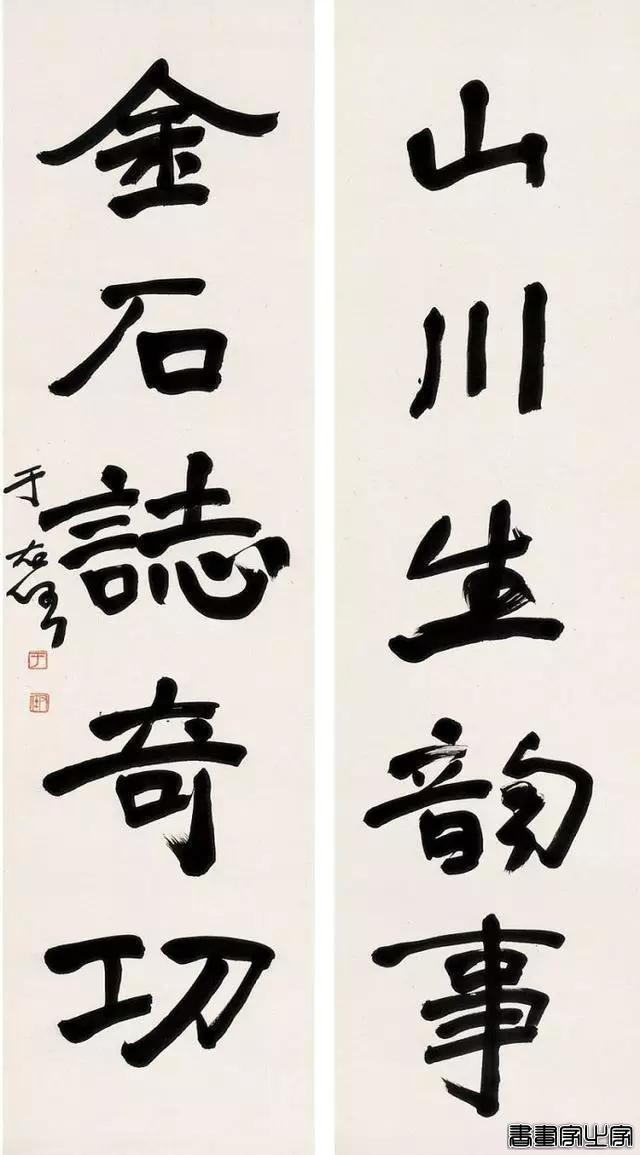 山川生韵事
金石誌奇功
于右任
書畫家之家